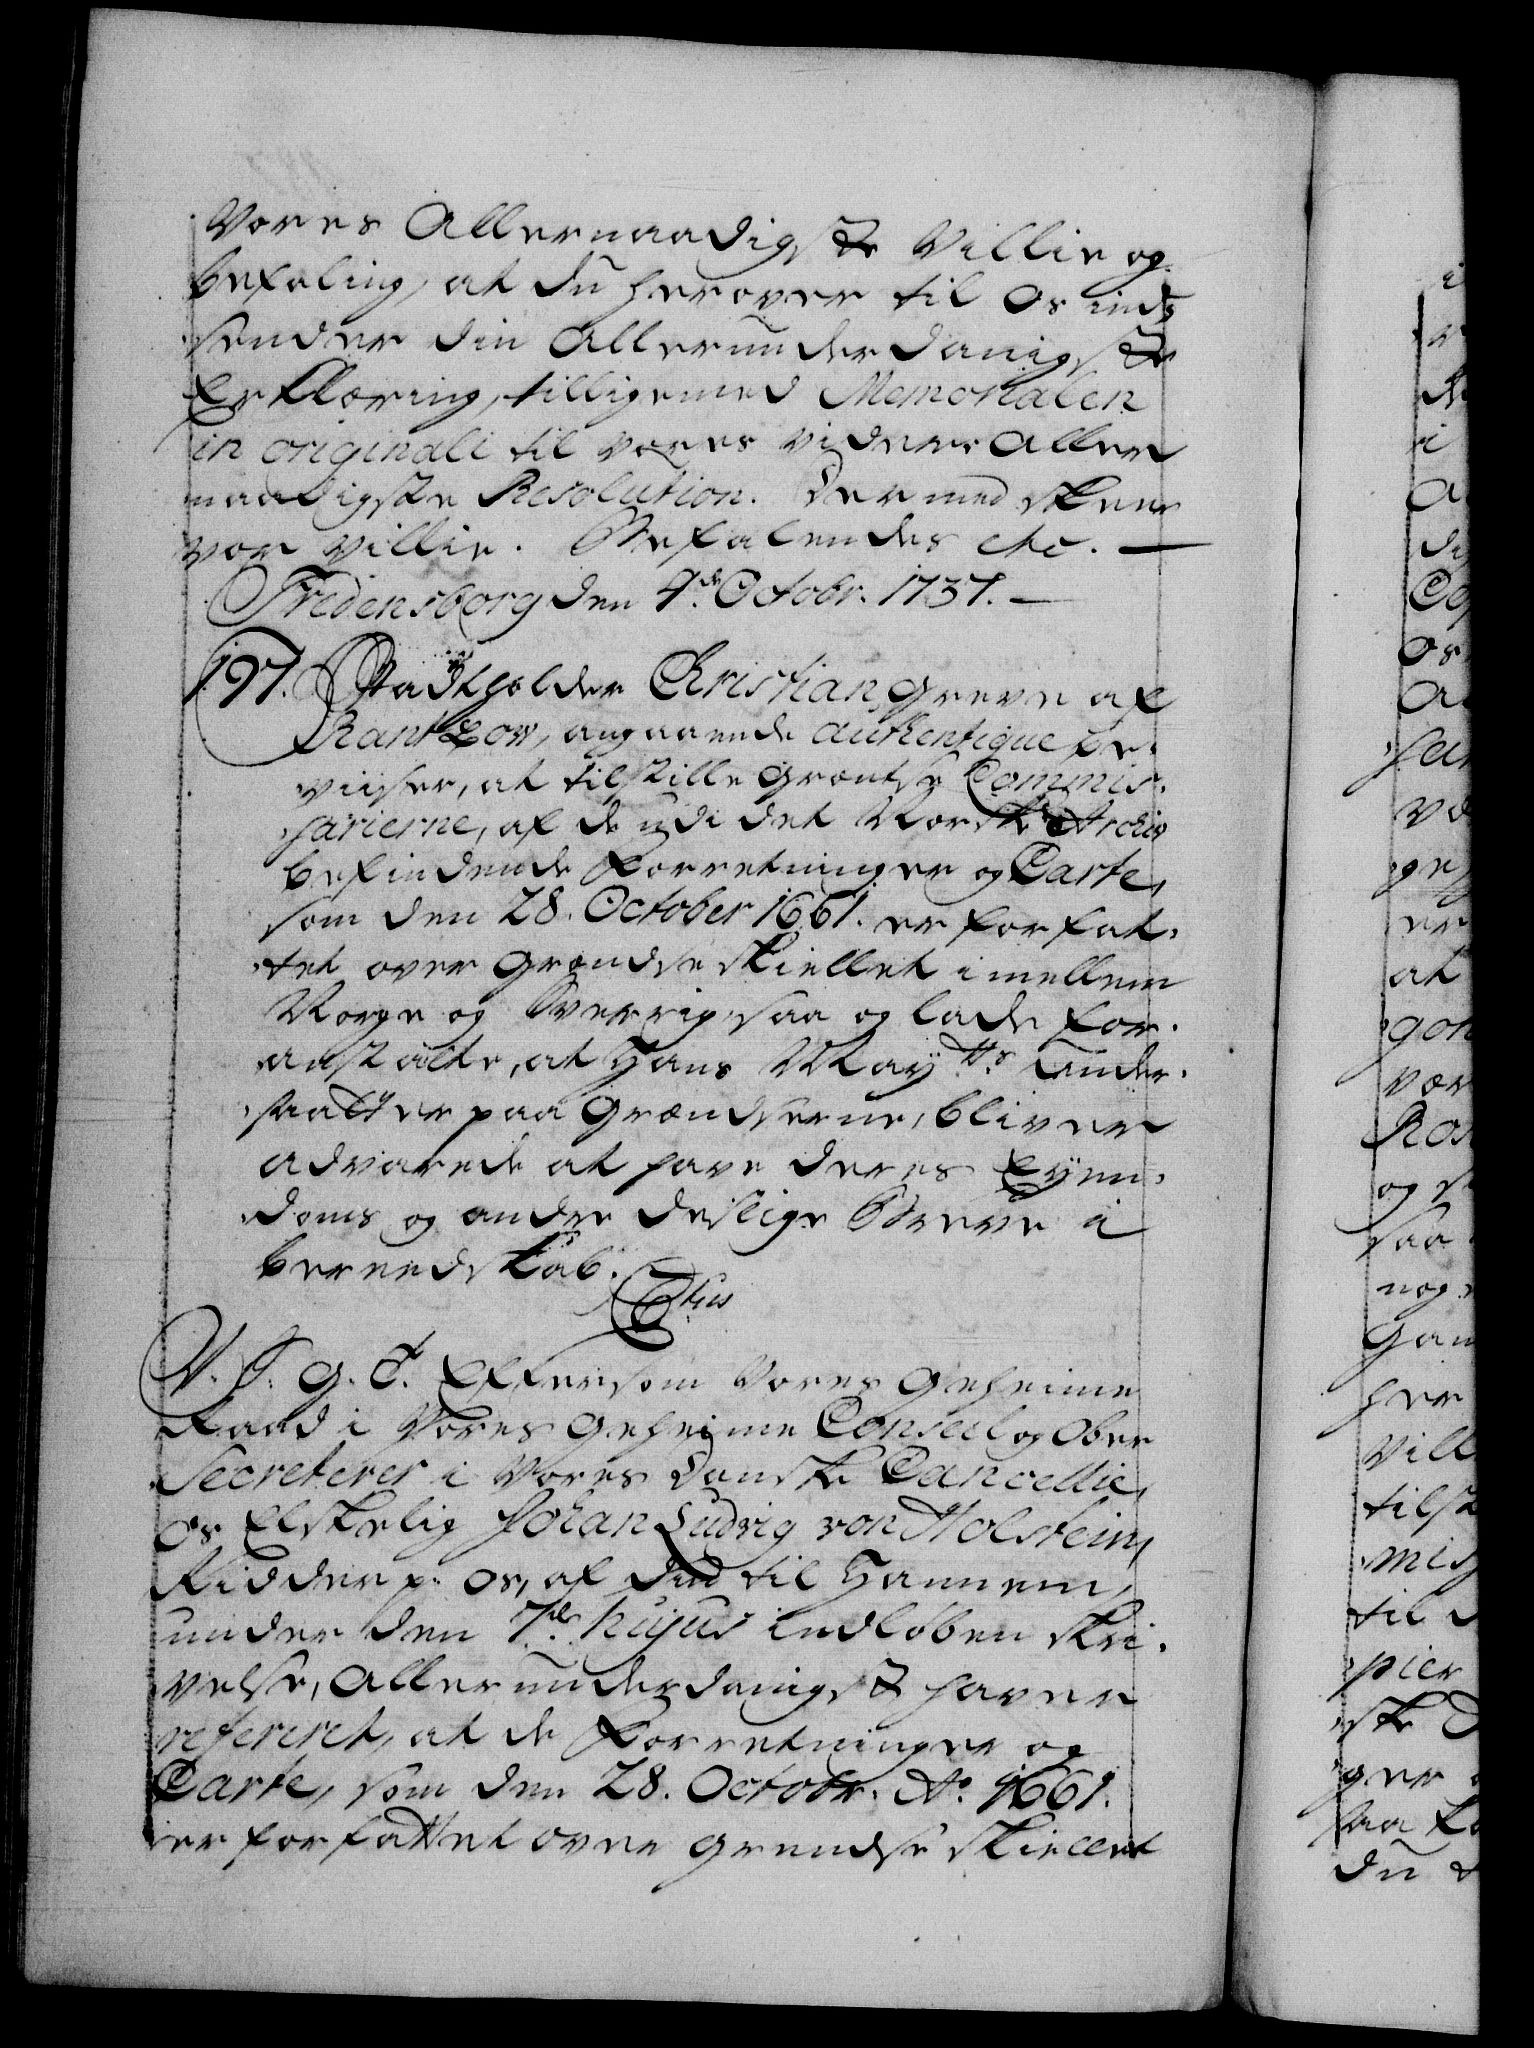 Vores Allernaadigste Villie og
befaling, at du herover til Os ind-
sender din Allerunderdanigste
Erklæring, tilligemed Memorialen
in originali til vores videre Aller
naadigste Resolution. Dermed skeer
vor Villie. Befalendes etc. —
Fredensborg den 4de Octobr. 1737. —
197. Stadtholder Christian, Greve af
Rantzow, angaaende authentique ge-
viiser, at tilstille Grænse Commis-
sarierne, af de udi det Norske Archiv
befindende Forretninger og Carte,
som den 28. October 1661. er forfat-
tet over Grændseskiellet imellem
Norge og Sverrig, saa og lade for-
anstalte, at Hans Mayts. Under-
saatter paa Grændserne, bliver
advarede at have deres Eyen-
doms og andre deslige Breve i
bereedskab.
V. J. G. T. Eftersom Vores Geheime
Raad i Vores Geheime Conseil og Ober
Secreterer i Vores Danske Cancellie,
Os Elskelig Johan Ludvig von Holstein,
Ridder p. Os, af din til Hannem,
under den 7de hujus indløben skri-
velse, Allerunderdanigst haver
refereret, at de Forretninger og
Carte, som den 28. Octobr. Ao. 1661.
er forfattet over Grendse skiellet